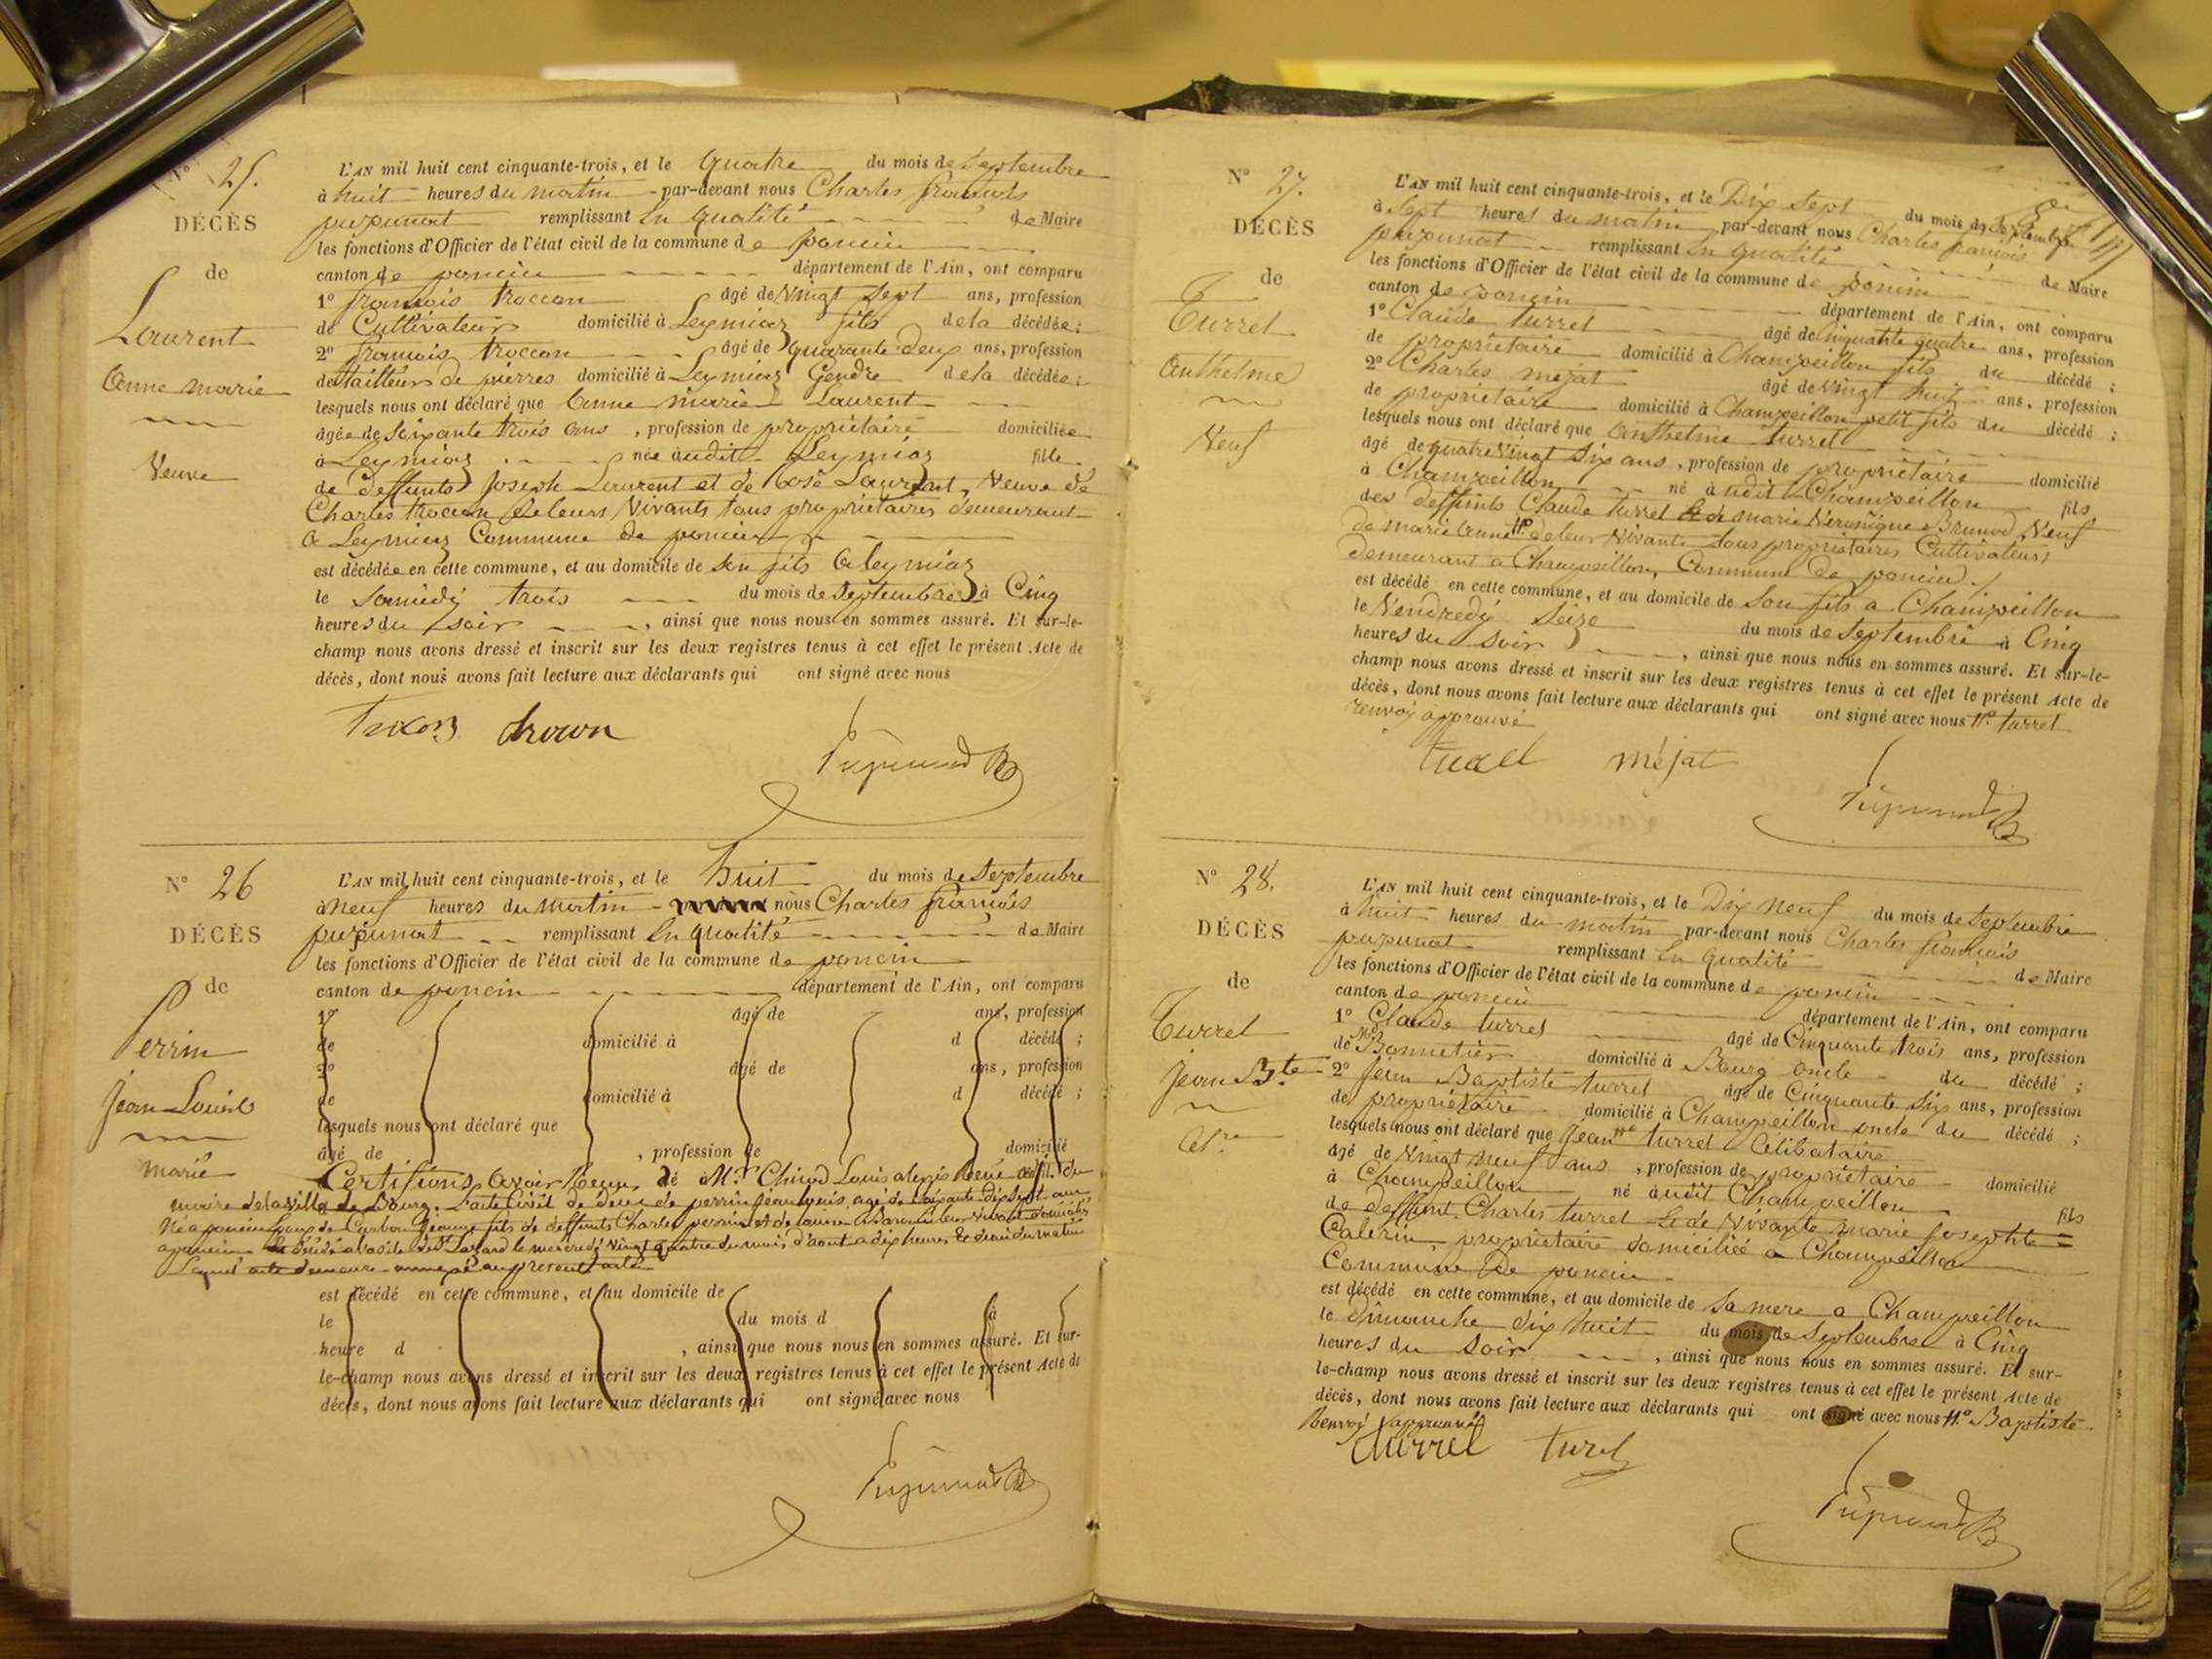 N° 25.
DÉCÈS
de
Laurent
Anne marie
Veuve
L'AN mil huit cent cinquante-trois, et le quatre du mois de Septembre
à huit heures du matin par-devant nous Charles françois
pupunat remplissant En qualité de Maire
les fonctions d'Officier de l'état civil de la commune de poncin
canton de poncin département de l'Ain, ont comparu
1° françois troccon âgé de Vingt Sept ans, profession
de Cultivateur domicilié à Leymiaz fils de la décédée;
2° françois troccon âgé de quarante deux ans, profession
de tailleur de pierres domicilié à Leymiaz Gendre de la décédée;
lesquels nous ont déclaré que Anne marie Laurent
âgée de Soixante trois ans, profession de propriétaire domiciliée
à Leymiaz née audit Leymiaz fille
de deffunts Joseph Laurent et de Laurent, Veuve de
Charles troccon de leurs Vivants tous propriétaires demeurant
a Leymiaz Commune de poncin
est décédée en cette commune, et au domicile de Son fils a leymiaz
le Samedi trois du mois de Septembre à Cinq
heures du soir, ainsi que nous nous en sommes assuré. Et sur-le-
champ nous avons dressé et inscrit sur les deux registres tenus à cet effet le présent Acte de
décès, dont nous avons fait lecture aux déclarants qui ont signé avec nous
N° 26
DÉCÈS
de
Perrin
Jean Louis
marié
L'AN mil huit cent cinquante-trois, et le huit du mois de Septembre
à neuf heures du matin nous Charles françois
pupunat remplissant En qualité de Maire
les fonctions d'Officier de l'état civil de la commune de poncin
canton de poncin département de l'Ain, ont comparu
1° âgé de ans, profession
de domicilié à d décédé;
2° âgé de ans, profession
de domicilié à d décédé;
lesquels nous ont déclaré que
âgé de, profession de domicilié
Certifions avoir Reçu de Mr. Chivod Louis alexis René adjt. du
maire de la ville de Bourg. L'acte Civil de décés de perrin jean louis, agé de soixante dix sept ans
Né a poncin fils de deffunts Charles perrin et de louise
a poncin décédé a l'asile de St. Lazard le mercredi Vingt quatre du mois d'aout a dix heures du matin
Lequel acte demeure annexé au present acte
est décédé en cette commune, et au domicile de
le du mois d à
heure d, ainsi que nous nous en sommes assuré. Et sur-
le-champ nous avons dressé et inscrit sur les deux registres tenus à cet effet le présent Acte de
décès, dont nous avons fait lecture aux déclarants qui ont signé avec nous
N° 27.
DÉCÈS
de
Turrel
Anthelme
Veuf
L'AN mil huit cent cinquante-trois, et le Dix Sept du mois de Septembre
à Sept heures du matin par-devant nous Charles françois
pupunat remplissant En qualité de Maire
les fonctions d'Officier de l'état civil de la commune de poncin
canton de poncin département de l'Ain, ont comparu
1° Claude turrel âgé de Cinquante quatre ans, profession
de propriétaire domicilié à Champeillon fils du décédé;
2° Charles mejat âgé de Vingt huit ans, profession
de propriétaire domicilié à Champeillon petit fils du décédé;
lesquels nous ont déclaré que Anthelme turrel
âgé de quatre Vingt Six ans, profession de propriétaire domicilié
à Champeillon né audit Champeillon fils
des deffunts Claude turrel et de marie Veronique Brunod, Veuf
de marie Anne de leur Vivants tous propriétaires Cultivateurs
demeurant a Champeillon, Commune de poncin
est décédé en cette commune, et au domicile de Son fils a Champeillon
le Vendredi Seize du mois de Septembre à Cinq
heures du soir, ainsi que nous nous en sommes assuré. Et sur-le-
champ nous avons dressé et inscrit sur les deux registres tenus à cet effet le présent Acte de
décès, dont nous avons fait lecture aux déclarants qui ont signé avec nous turrel
renvoy approuvé
méjat
N° 28.
DÉCÈS
de
Turrel
Jean Bte
L'AN mil huit cent cinquante-trois, et le Dix neuf du mois de Septembre
à huit heures du matin par-devant nous Charles françois
pupunat remplissant En qualité de Maire
les fonctions d'Officier de l'état civil de la commune de poncin
canton de poncin département de l'Ain, ont comparu
1° Claude turrel âgé de Cinquante trois ans, profession
de Bonnetier domicilié à Bourg oncle du décédé;
2° Jean Baptiste turrel âgé de Cinquante Six ans, profession
de propriétaire domicilié à Champeillon oncle du décédé;
lesquels nous ont déclaré que Jean turrel Célibataire
âgé de Vingt neuf ans, profession de propriétaire domicilié
à Champeillon né audit Champeillon fils
de deffunt Charles turrel et de Vivante marie Josephte
propriétaire domiciliée a Champeillon
Commune de poncin
est décédé en cette commune, et au domicile de Sa mere a Champeillon
le dimanche dix huit du mois de Septembre à Cinq
heures du soir, ainsi que nous nous en sommes assuré. Et sur-
le-champ nous avons dressé et inscrit sur les deux registres tenus à cet effet le présent Acte de
décès, dont nous avons fait lecture aux déclarants qui ont signé avec nous Baptiste
Renvoy approuvé
turrel turel